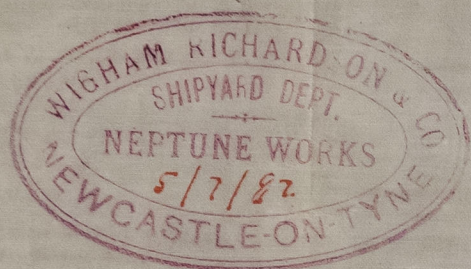 WIGHAM RICHARDSON & CO
SHIPYARD DEPT.
NEPTUNE WORKS
5/7/82
NEWCASTLE-ON-TYNE